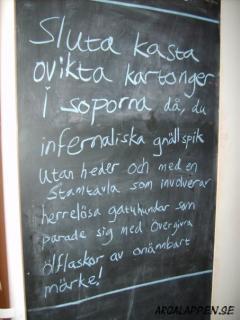 Sluta kasta
ovikta kartonger
i soporna då, du
infernaliska gnällspik
utan heder och med en
stamtavla som involverar
herrelösa gatuhundar som
parade sig med övergivna
ölflaskor av onämnbart
märke!
ARGALAPPEN.SE